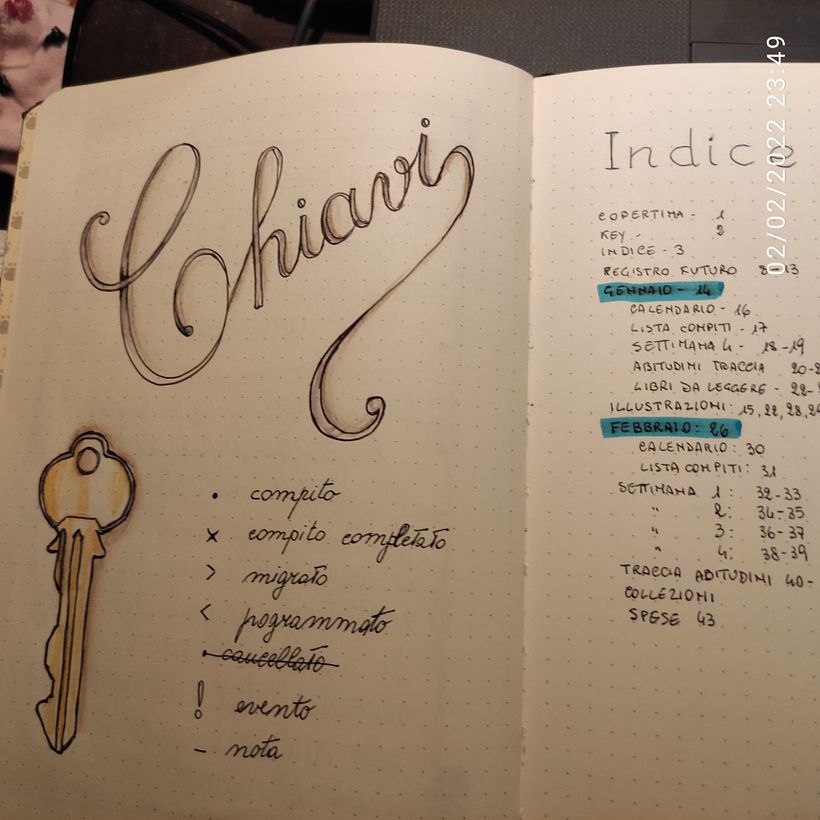 Chiavi
• compito
x compito completato
> migrato
< pogrammato
• cancellato
! evento
– nota
Indice
COPERTINA - 1
KEY - 2
INDICE - 3
REGISTRO FUTURO 8-13
GENNAIO - 14
CALENDARIO - 16
LISTA COMPITI - 17
SETTIMANA 4 - 18-19
ABITUDINI TRACCIA 20-
LIBRI DA LEGGERE - 22-
ILLUSTRAZIONI: 15, 22, 28,
FEBBRAIO: 26
CALENDARIO: 30
LISTA COMPITI: 31
SETTIMANA 1: 32-33
" 2: 34-35
" 3: 36-37
" 4: 38-39
TRACCIA ABITUDINI 40-
COLLEZIONI
SPESE 43
02/02/2022 23:49